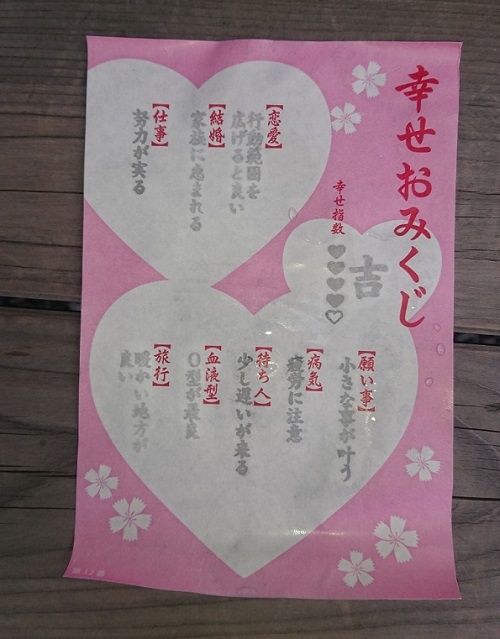 幸せおみくじ
幸せ指数
♥♥♥♥♡
吉
【恋愛】
行動範囲を
広げると良い
【結婚】
家族に恵まれる
【仕事】
努力が実る
【願い事】
小さな事が叶う
【病気】
疲労に注意
【待ち人】
少し遅いが来る
【血液型】
O型が最良
【旅行】
暖かい地方が
良い
第12番